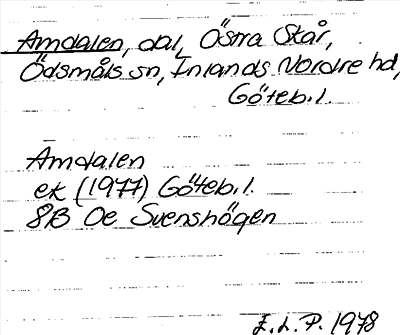 Amdalen, dal, Östra Skår,
Ödsmåls sn, Inlands Nordre hd,
Göteb. l.
Amdalen
ek (1977) Göteb. l.
8B 0e Svenshögen
E. L. P. 1978